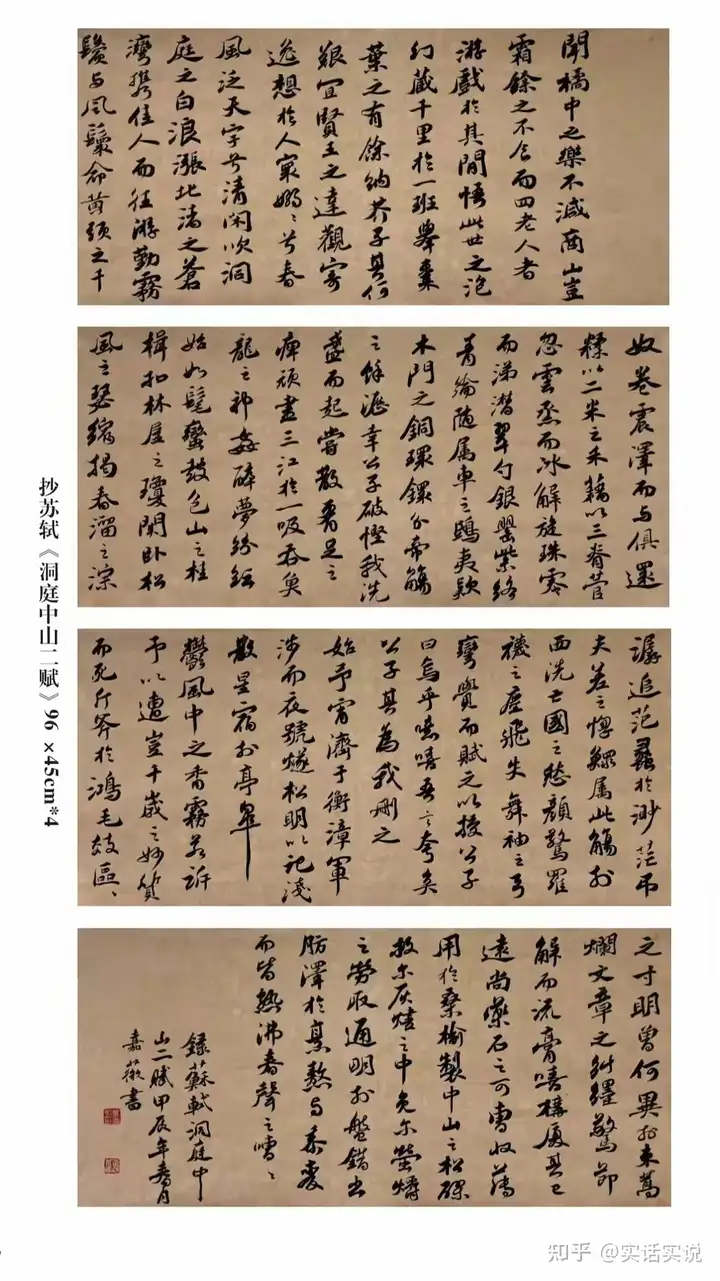 聞橘中之樂不減商山豈
霜餘之不食而四老人者
游戲於其間悟此世之泡
幻藏千里於一班舉棗
葉之有餘納芥子其何
艱宜賢王之達觀寄
逸想於人寰嫋〻兮春
風泛天宇兮清閑吹洞
庭之白浪漲北渚之蒼
灣攜佳人而往游勤霧
鬢与風鬟命黄頭之千
奴卷震澤而与俱還
糅以二米之禾藉以三脊菅
忽雲烝而冰解旋珠零
而涕潸翠勺銀罌紫絡
青綸隨属車之鴟夷款
木門之銅環鐶分帝觴
之餘瀝幸公子破慳我洗
盞而起嘗散腰足之
痺頑盡三江於一吸吞魚
龍之神姦醉夢紛紜
始如髦蠻鼓包山之桂
楫扣林屋之瓊関卧松
風之瑟縮揭春溜之淙
潺追范蠡於渺茫吊
夫差之惸鰥属此觴於
西洗亡國之愁顏驚羅
襪之塵飛失舞袖之弓
彎覺而賦之以授公子
曰烏乎噫嘻吾言夸矣
公子其為我刪之
始予宵濟于衡漳軍
涉而夜號燧松明以記淺
散星宿於亭皋
鬱風中之香霧若訴
予以遭豈千歲之妙質
而死斤斧於鴻毛效區〻
之寸明曾何異於束蒿
爛文章之糾纆驚節
解而流膏嘻構廈其已
遠尚藥石之可曹收薄
用於桑榆製中山之松醪
救尔灰燼之中免尔螢爝
之勞取通明於盤錯出
肪澤於烹熬与黍麥
而皆熱沸舂聲之嘈〻
錄蘇軾洞庭中
山二賦甲辰年春月
嘉薇書
抄苏轼《洞庭中山二赋》96 ×45cm*4
知乎 @实话实说